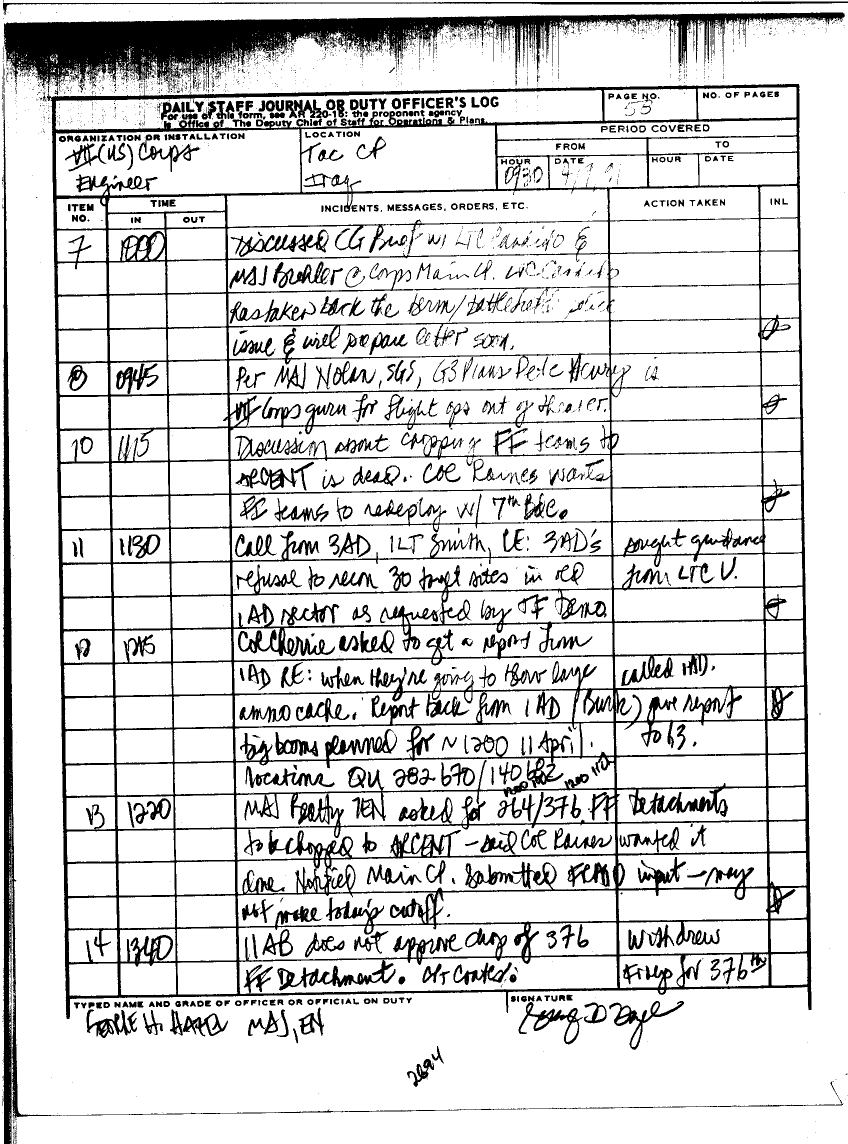 DAILY STAFF JOURNAL OR DUTY OFFICER'S LOG
For use of this form, see AR 220-15; the proponent agency
is Office of The Deputy Chief of Staff for Operations & Plans.
PAGE NO.
NO. OF PAGES
ORGANIZATION OR INSTALLATION
VII (US) Corps
Engineer
LOCATION
Tac CP
Iraq
PERIOD COVERED
FROM
TO
HOUR
DATE
HOUR
DATE
0930
ITEM NO.
TIME
IN
OUT
INCIDENTS, MESSAGES, ORDERS, ETC.
ACTION TAKEN
INL
7 1000 Discussed CG Brief w/ LTC &
MAJ @ Corps Main CP. LTC
has taken back the berm/battlefield police
issue & will prepare letter soon.
0945 Per MAJ Nolan, SGS, G3 Plans Pete is
VII Corps guru for flight ops out of theater.
10 1115 Discussion about chopping FF teams to
ARCENT is dead. COL Raines wants
FF teams to redeploy w/ 7th Bde.
11 1130 Call from 3AD, 1LT Smith, RE: 3AD's sought guidance
refusal to recon 30 target sites in old from LTC V.
1AD sector as requested by TF Demo.
12 1215 COL Cherrie asked to get a report from
1AD RE: when they're going to blow large called 1AD.
ammo cache. Report back from 1AD (Burk) gave report
big booms planned for ~1200 11 April. to G3.
locations QU 282670/140682
13 1220 MAJ Beatty 7EN asked for 264/376 FF Detachments
to be chopped to ARCENT - said COL Raines wanted it
done. Notified Main CP. Submitted input - may
not make today's cutoff.
14 1340 11AB does not approve chop of 376 Withdrew
FF Detachment. CPT Coates. for 376th
TYPED NAME AND GRADE OF OFFICER OR OFFICIAL ON DUTY
SIGNATURE
MAJ, EN
2694